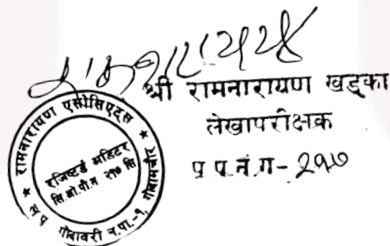 श्री रामनारायण खड्का
लेखापरीक्षक
प प.नं.ग- २१७
रामनारायण एसोसिएट्स
रजिष्टर्ड अडिटर
सि.ओ.पी.नं २१७ सि
गोदावरी न.पा.-१,